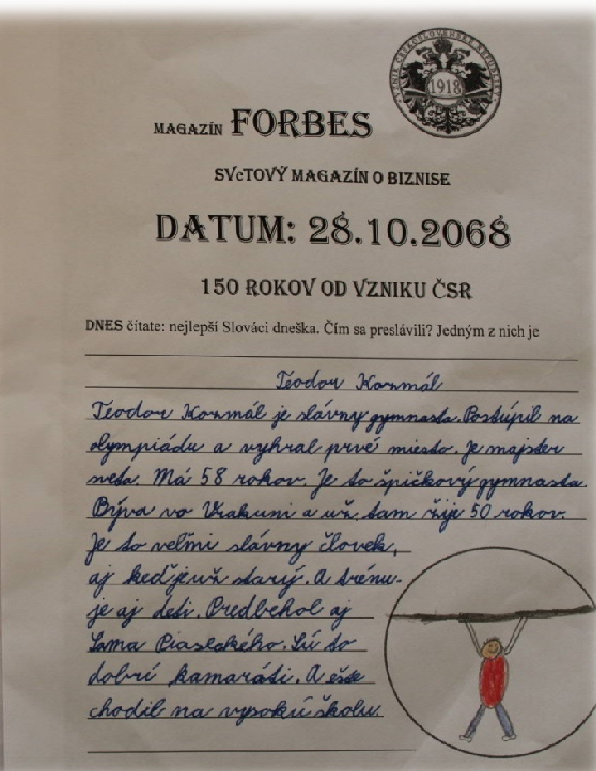 VZNIK ČESKOSLOVENSKEJ REPUBLIKY
1918
MAGAZÍN FORBES
SVeTOVÝ MAGAZÍN O BIZNISE
DATUM: 28.10.2068
150 ROKOV OD VZNIKU ČSR
DNES čítate: nejlepší Slováci dneška. Čím sa preslávili? Jedným z nich je
Teodor Kormál
Teodor Kormál je slávny gymnasta. Postúpil na
olympiádu a vyhral prvé miesto. Je majster
sveta. Má 58 rokov. Je to špičkový gymnasta.
Býva vo Vrakuni a už tam žije 50 rokov.
Je to veľmi slávny človek,
aj keď je už starý. A trénu-
je aj deti. Predbehol aj
Sama Piaseckého. Sú to
dobrí kamaráti. A ešte
chodil na vysokú školu.